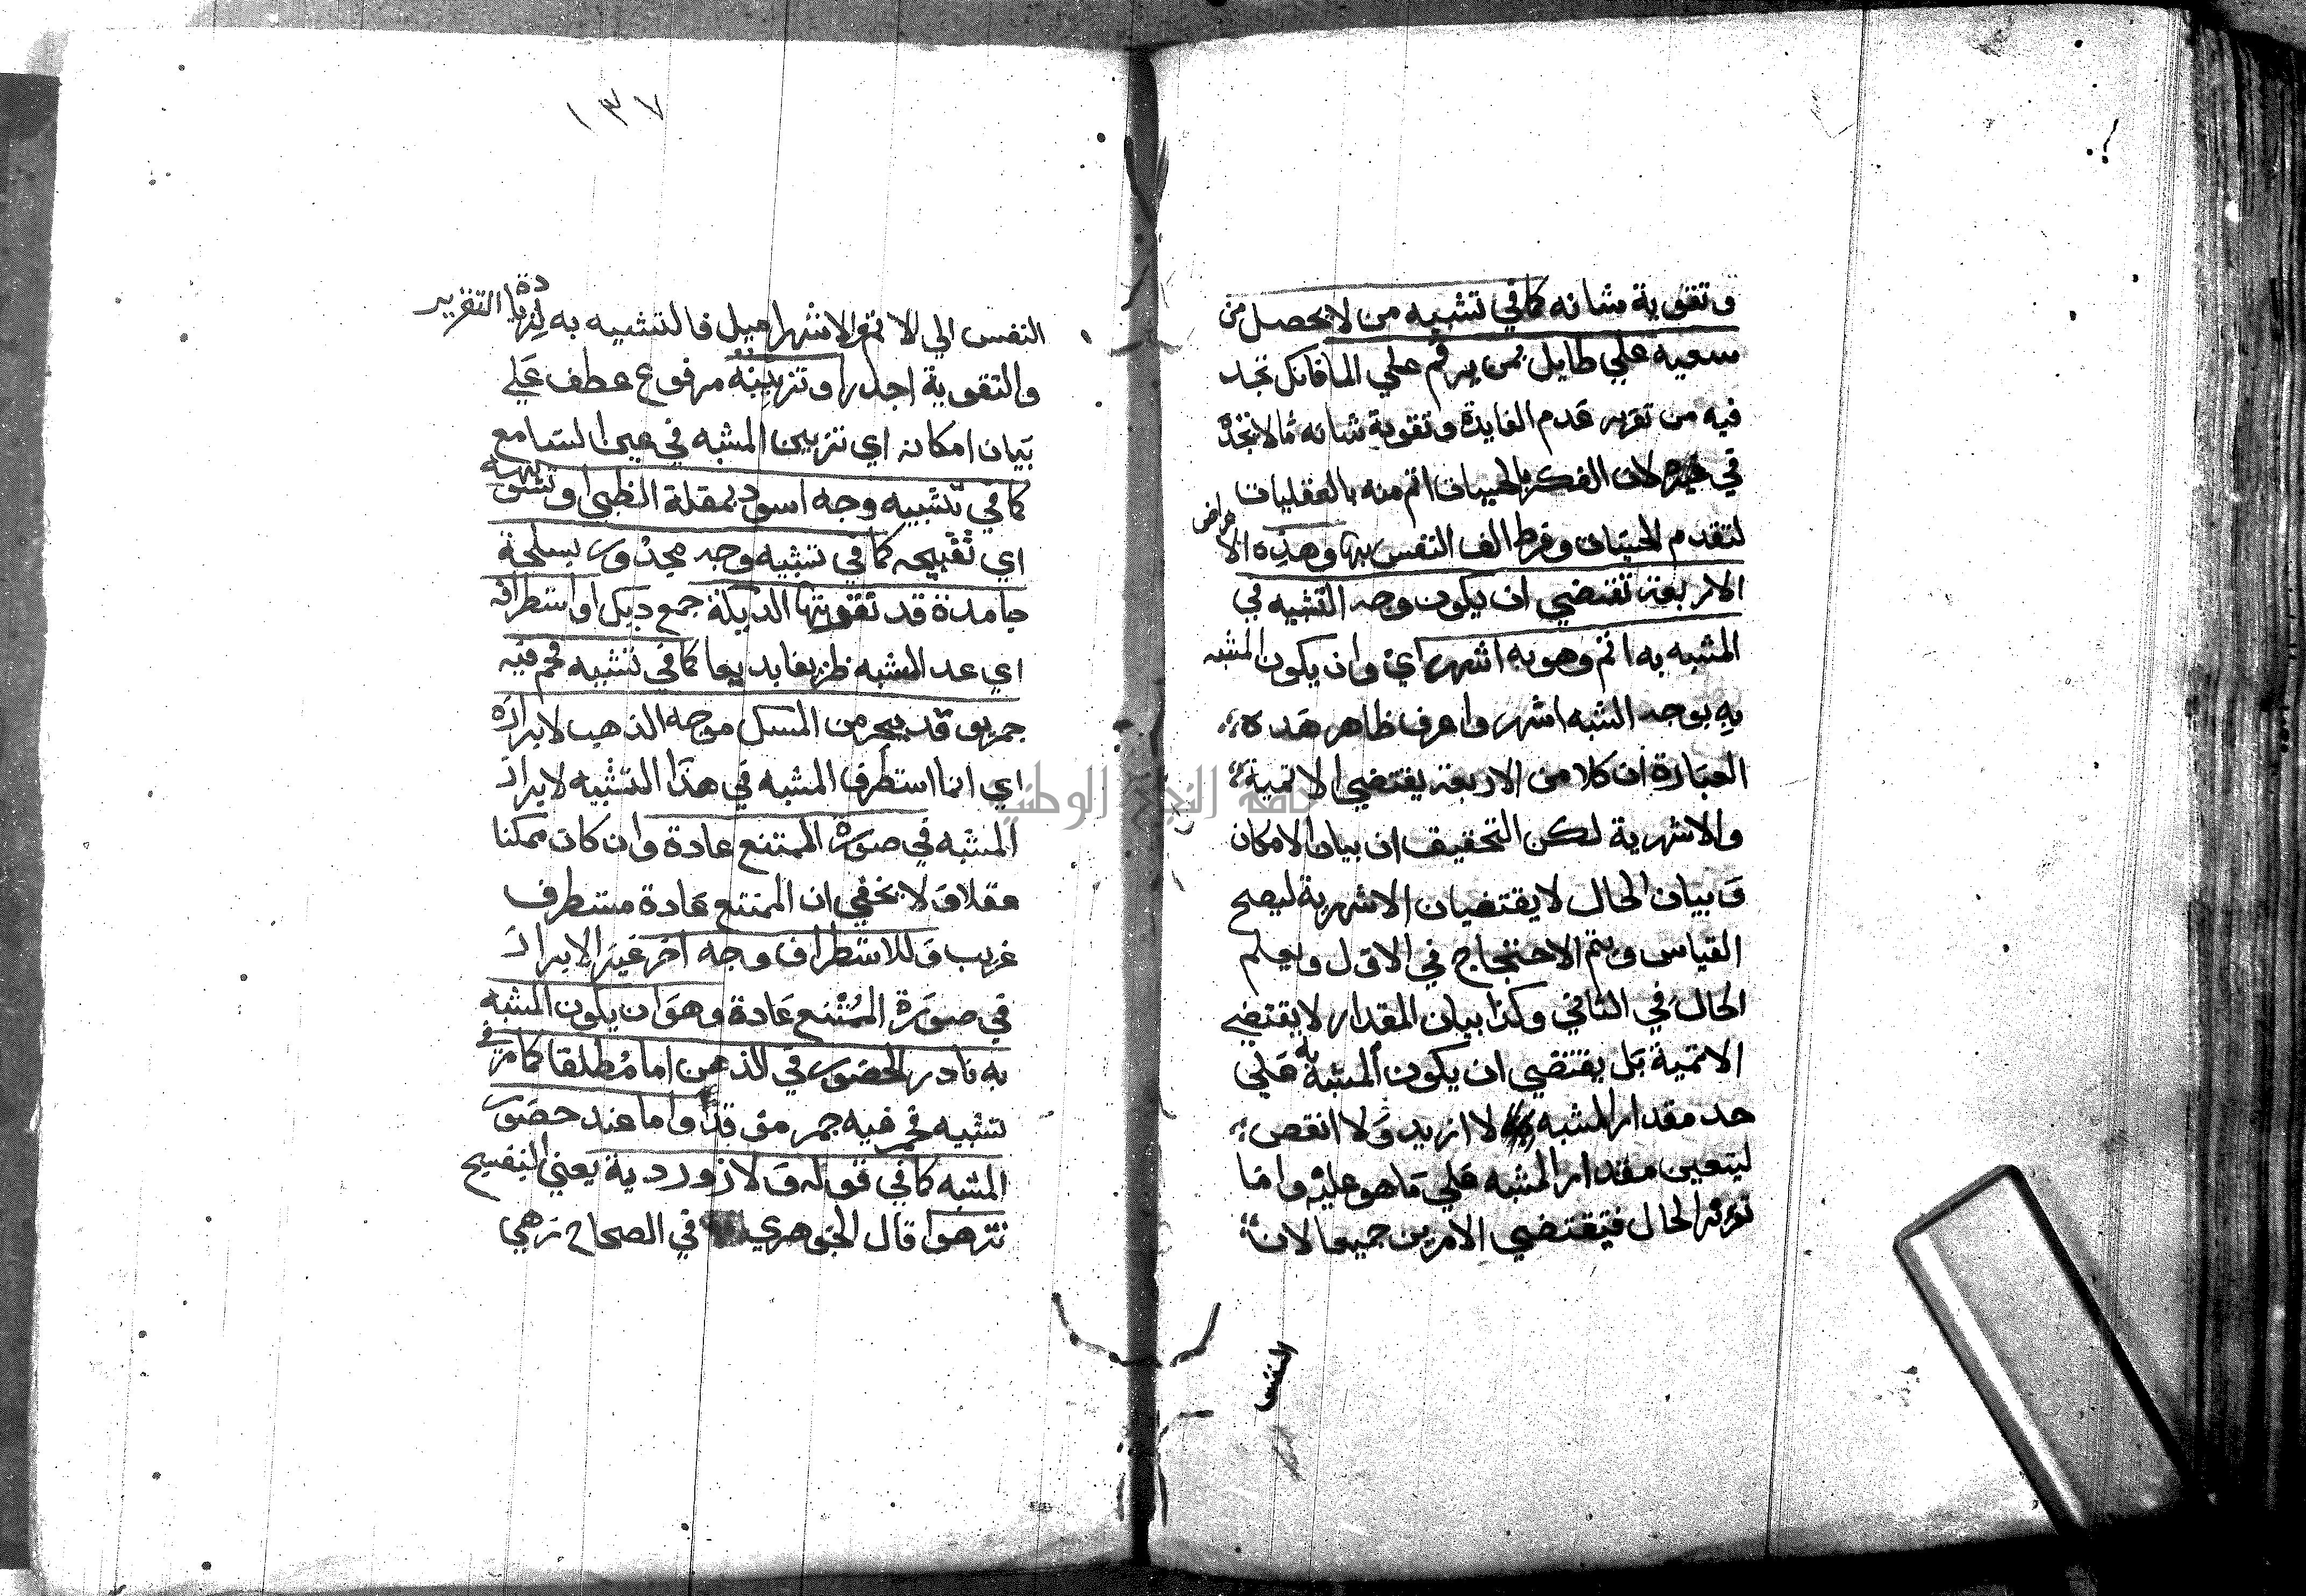 وتقوية شانه كما في تشبيه من لا يحصل من
سعيه علي طايل بمن يرقم علي الما فانك تجد
فيه من تقرير عدم الفايدة وتقوية شانه مالا تجده
في غيره لان الفكر بالحسيات اتم منه بالعقليات
لتقدم الحسيات وفرط الف النفس بها وهذه الاغراض
الاربعة تقتضي ان يكون وجه التشبيه في
المشبه به اتم وهو به اشهر اي وان يكون المشبه
به بوجه الشبه اشهر واعرف ظاهر هذه
العبارة ان كلا من الاربعة يقتضي الاتمية
والاشهرية لكن التحقيق ان بيان الامكان
وبيان الحال لا يقتضيان الاشهرية ليصح
القياس ويتم الاحتجاج في الاول ويعلم
الحال في الثاني وكذا بيان المقدار لا يقتضي
الاتمية بل يقتضي ان يكون المشبه به علي
حد مقدار المشبه لا ازيد ولا انقص
ليتعين مقدار المشبه علي ما هو عليه واما
تقرير الحال فيقتضي الامرين جميعا لان
النفس
١٣٧
النفس الي الاتم والاشهر اميل فالتشبيه به لزيادة التقرير
والتقوية اجدر او تزيينه مرفوع عطف علي
بيان امكانه اي تزيين المشبه في عين السامع
كما في تشبيه وجه اسود بمقلة الظبي او تشويهه
اي تقبيحه كما في تشبيه وجه مجدور بسلحة
جامدة قد نقرتها الديكة جمع ديك او استطرافه
اي عد المشبه ظريفا بديعا كما في تشبيه فحم فيه
جمر موقد ببحر من المسك موجه الذهب لابرازه
اي انما استطرف المشبه في هذا التشبيه لابراز
المشبه في صورة الممتنع عادة وان كان ممكنا
عقلا ولا يخفي ان الممتنع عادة مستطرف
غريب وللاستطراف وجه اخر غير الابراز
في صورة الممتنع عادة وهو ان يكون المشبه
به نادر الحضور في الذهن اما مطلقا كما مر في
تشبيه فحم فيه جمر موقد واما عند حضور
المشبه كما في قوله ولازوردية يعني البنفسج
تزهو قال الجوهري في الصحاح زهي
جامعة النجاح الوطنية